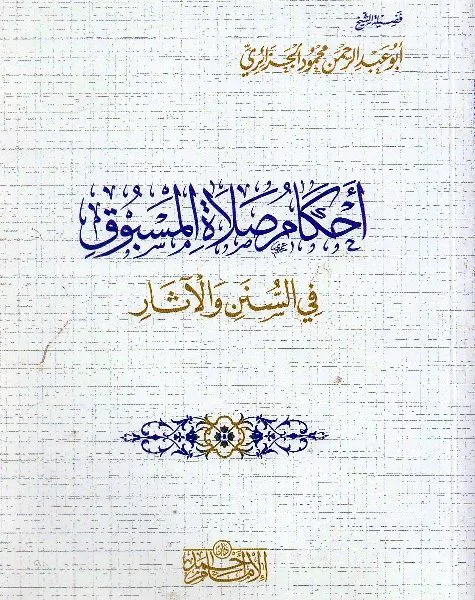 فضيلة الشيخ
أبو عبد الرحمن محمود الجزائري
أَحْكَامُ صَلَاةِ المَسْبُوقِ
فِي السُّنَنِ وَالآثَارِ
دار
الإمام أحمد